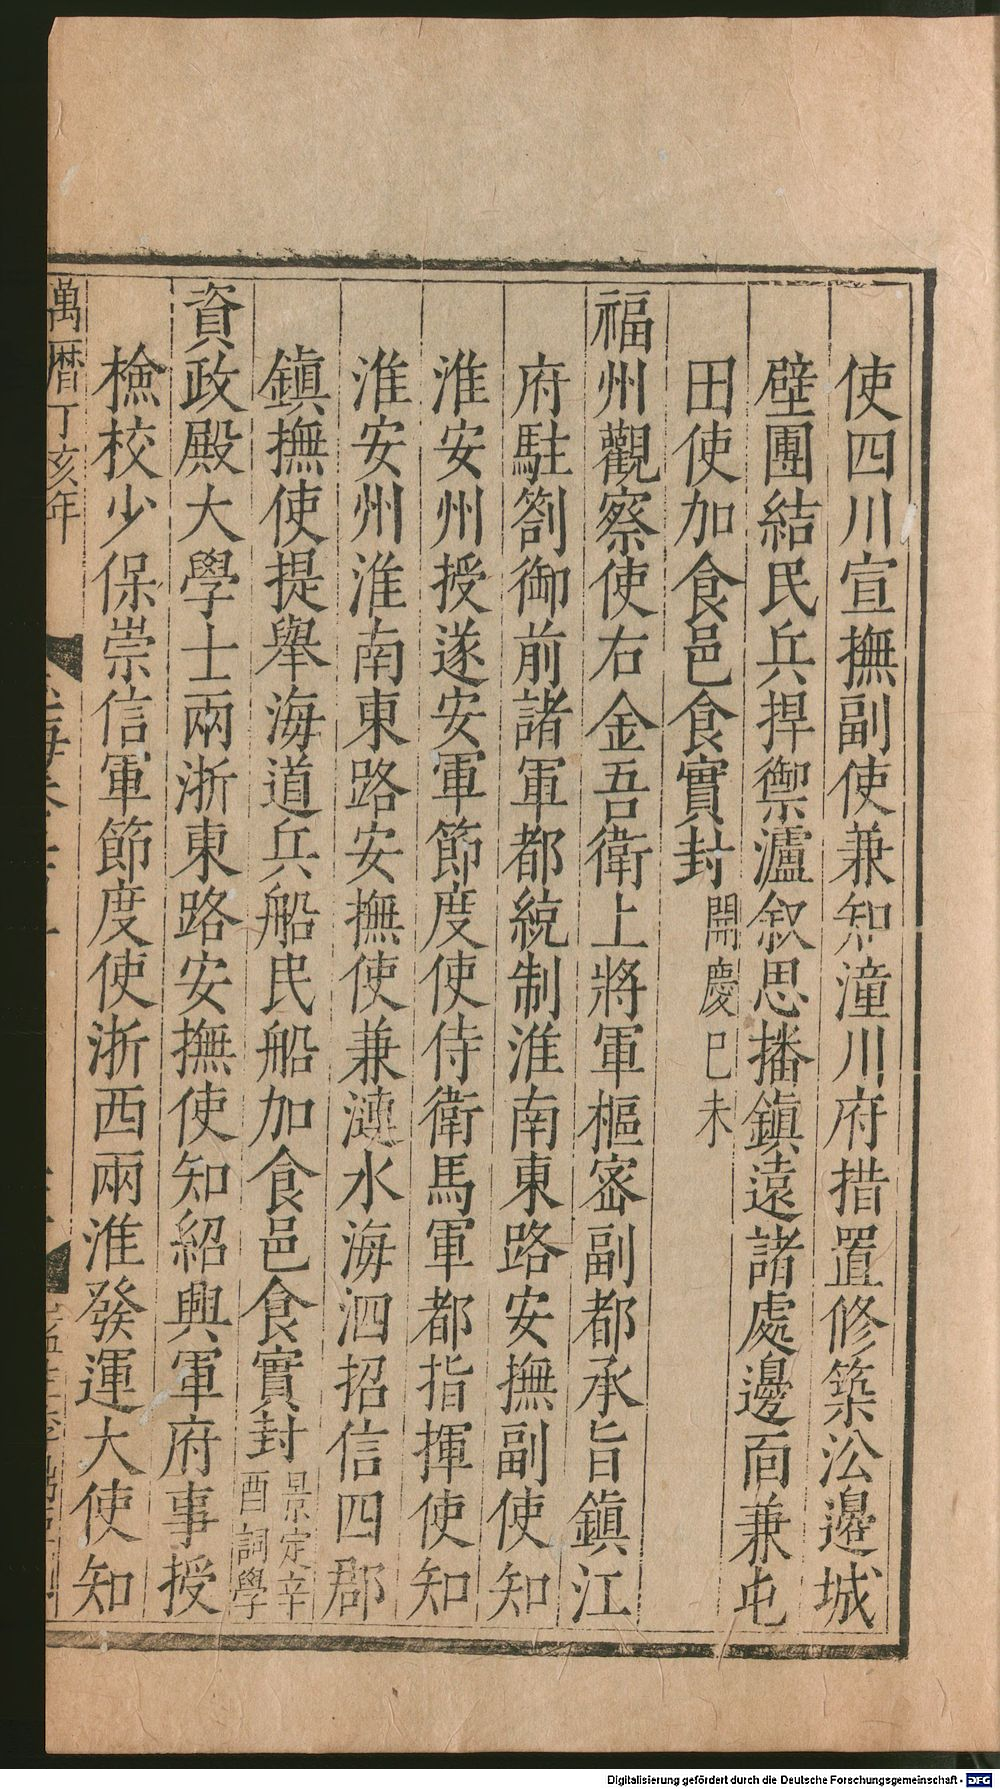 使四川宣撫副使兼知潼川府措置修築沿邊城
壁團結民兵捍禦瀘叙思播鎮遠諸處邊面兼屯
田使加食邑食實封開慶己未
福州觀察使右金吾衛上將軍樞宻副都承旨鎮江
府駐劄御前諸軍都統制淮南東路安撫副使知
淮安州授遂安軍節度使侍衛馬軍都指揮使知
淮安州淮南東路安撫使兼漣水海泗招信四郡
鎮撫使提舉海道兵船民船加食邑食實封景定辛
酉詞學
資政殿大學士兩浙東路安撫使知紹興軍府事授
檢校少保崇信軍節度使浙西兩淮發運大使知
萬曆丁亥年
Digitalisierung gefördert durch die Deutsche Forschungsgemeinschaft - DFG